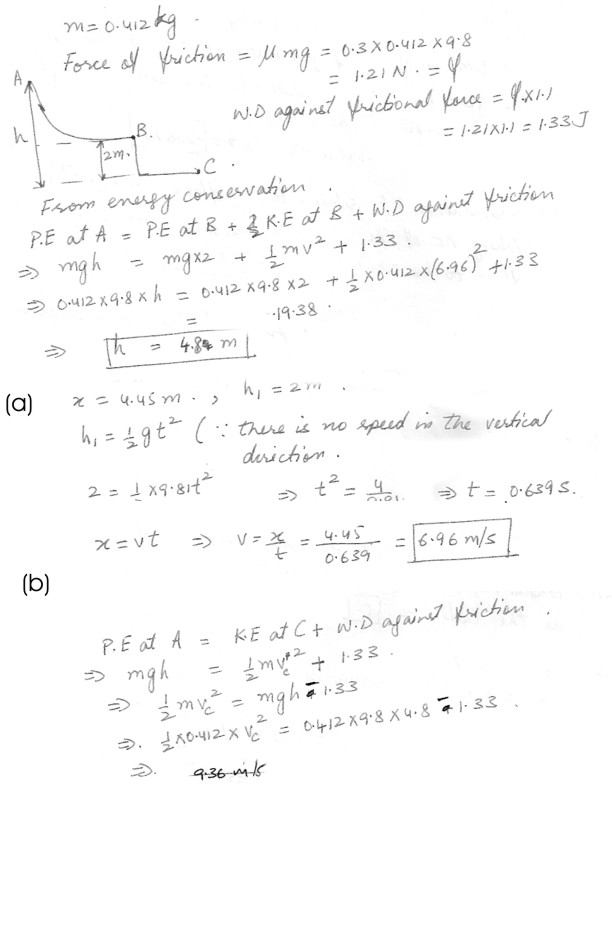 m = 0.412 kg.
Force of friction = μmg = 0.3 × 0.412 × 9.8
= 1.21 N. = f
W.D against frictional force = f × 1.1
= 1.21 × 1.1 = 1.33 J
A
h
B.
2m.
C.
From energy conservation.
P.E at A = P.E at B + K.E at B + W.D against friction
⇒ mgh = mg×2 + ½ mv² + 1.33.
⇒ 0.412 × 9.8 × h = 0.412 × 9.8 × 2 + ½ × 0.412 × (6.96)² + 1.33
= 19.38.
⇒ h = 4.8 m
(a) x = 4.45 m. , h₁ = 2m.
h₁ = ½ gt² (∵ there is no speed in the vertical
direction.
2 = ½ × 9.81t² ⇒ t² = 4/9.81. ⇒ t = 0.639 S.
x = vt ⇒ v = x/t = 4.45/0.639 = 6.96 m/s
(b)
P.E at A = K.E at C + W.D against friction.
⇒ mgh = ½ mv_c² + 1.33.
⇒ ½ mv_c² = mgh - 1.33
⇒. ½ × 0.412 × v_c² = 0.412 × 9.8 × 4.8 - 1.33.
⇒. 9.36 m/s